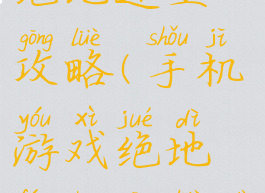 gōng lüè shǒu jī
攻略(手机
yóu xì jué dì
游戏绝地